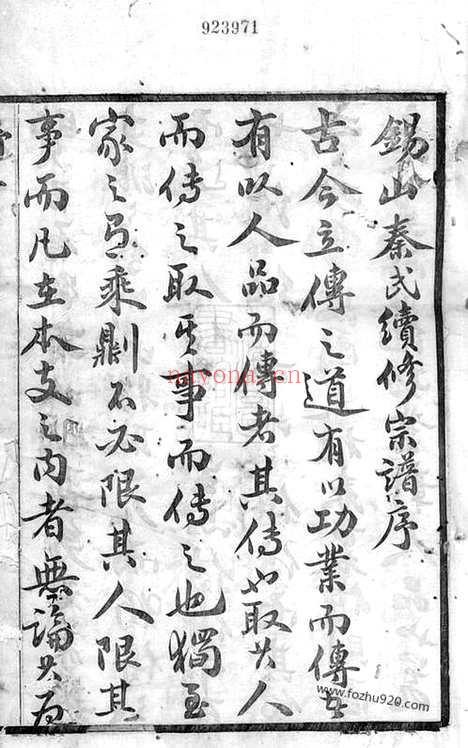 923971
錫山秦氏續修宗譜序
古今立傳之道有以功業而傳者
有以人品而傳者其傳也取其人
而傳之取其事而傳之也獨至
家之有乘則不必限其人限其
事而凡在本支之內者無論其為
nayona.cn
www.fozhu920.com